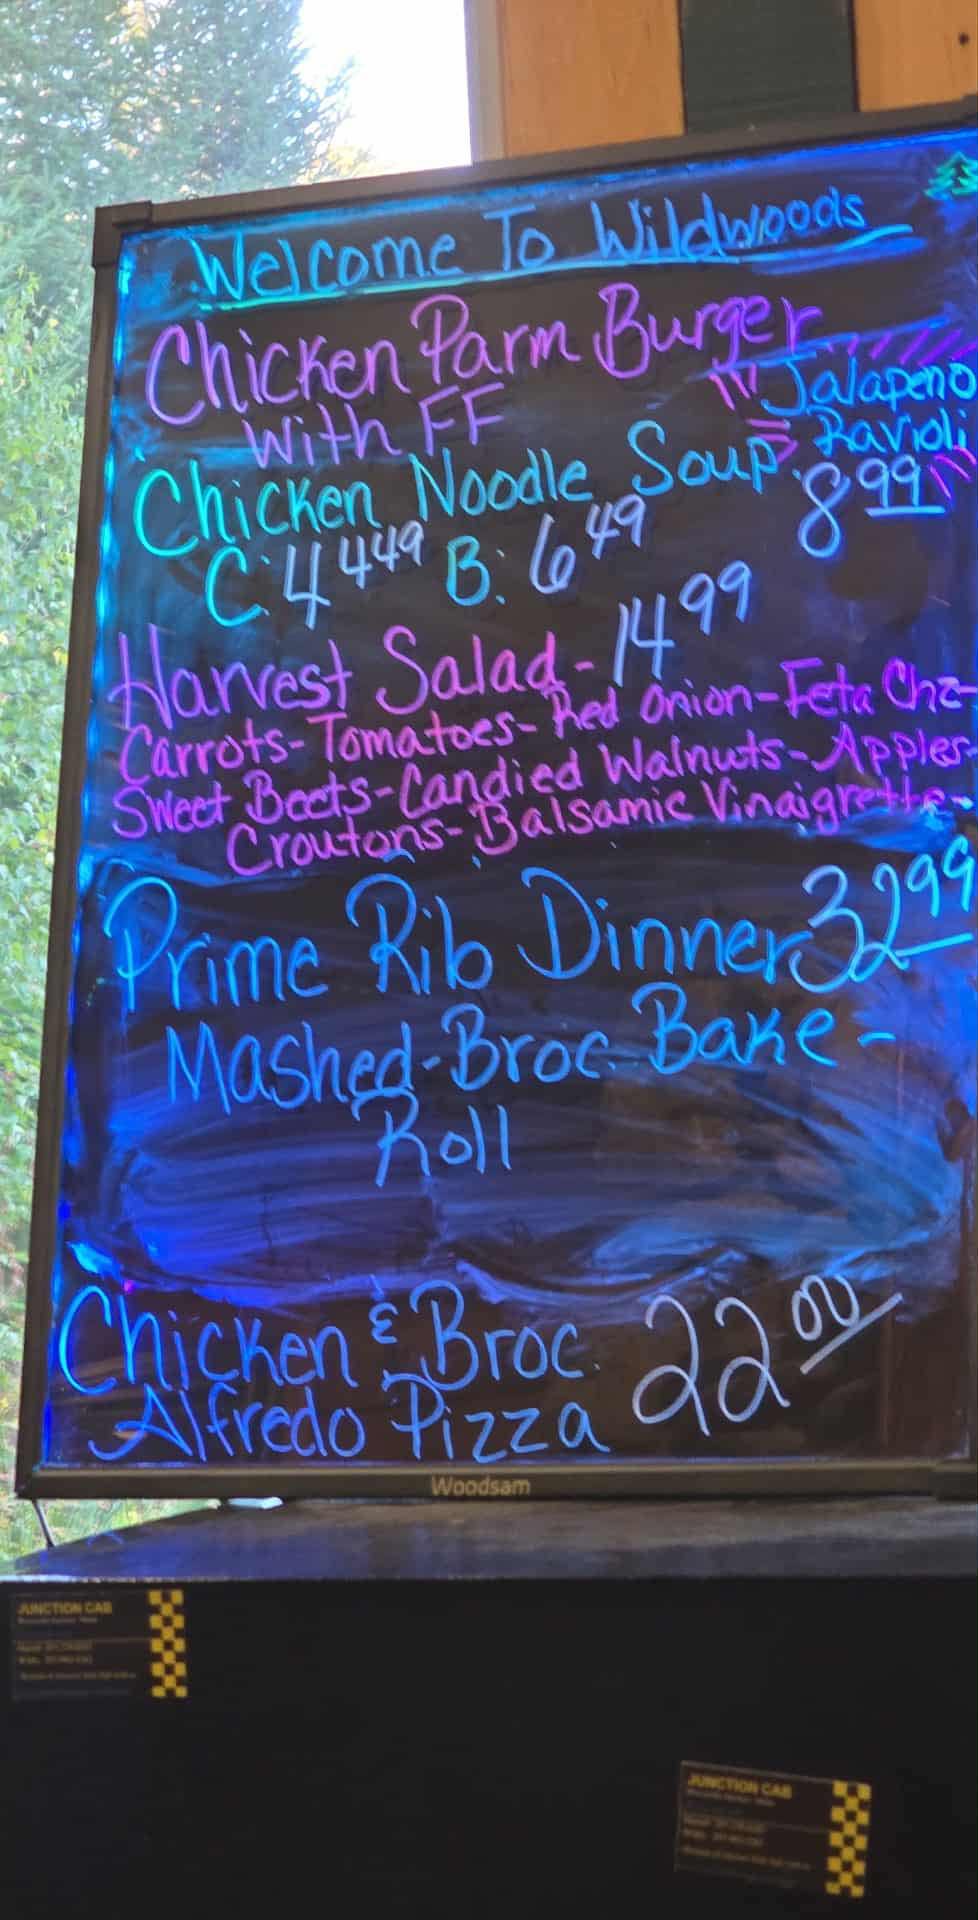 Welcome To Wildwoods
Chicken Parm Burger
With FF
Jalapeno
Ravioli
8 99
Chicken Noodle Soup
C: 4 449 B: 6 49
Harvest Salad - 14 99
Carrots - Tomatoes - Red Onion - Feta Che-
Sweet Beets - Candied Walnuts - Apples-
Croutons - Balsamic Vinaigrette-
Prime Rib Dinner 32 99
Mashed - Broc. Bake -
Roll
Chicken & Broc. 22 00
Alfredo Pizza
Woodsam
JUNCTION CAB
JUNCTION CAB